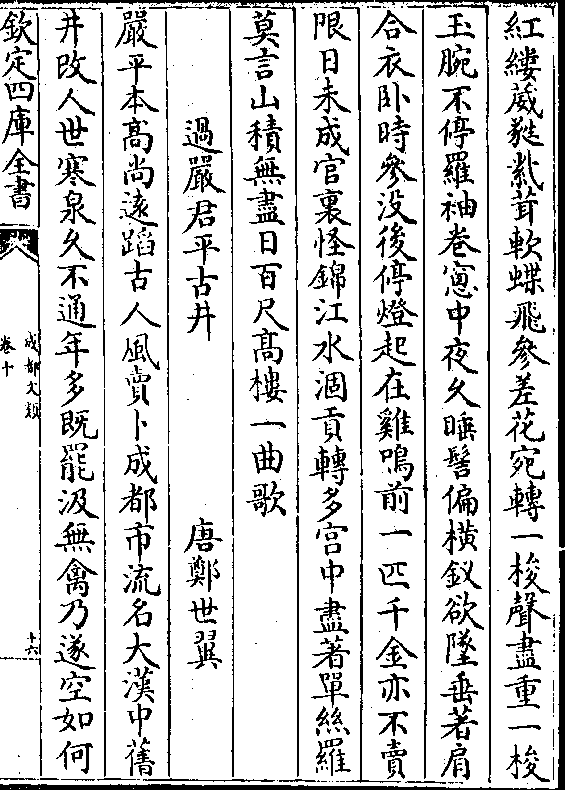 紅縷葳蕤紫茸軟蝶飛參差花宛轉一梭聲盡重一梭
玉腕不停羅袖卷窻中夜久睡髻偏橫釵欲墜垂著肩
合衣卧時參没後停燈起在雞鳴前一匹千金亦不賣
限日未成官裏怪錦江水涸貢轉多宫中盡著單絲羅
莫言山積無盡日百尺髙樓一曲歌
過嚴君平古井　唐鄭世翼
嚴平本髙尚逺蹈古人風賣卜成都市流名大漢中舊
井改人世寒泉久不通年多既罷汲無禽乃遂空如何
欽定四庫全書
成都文類
卷十
十六